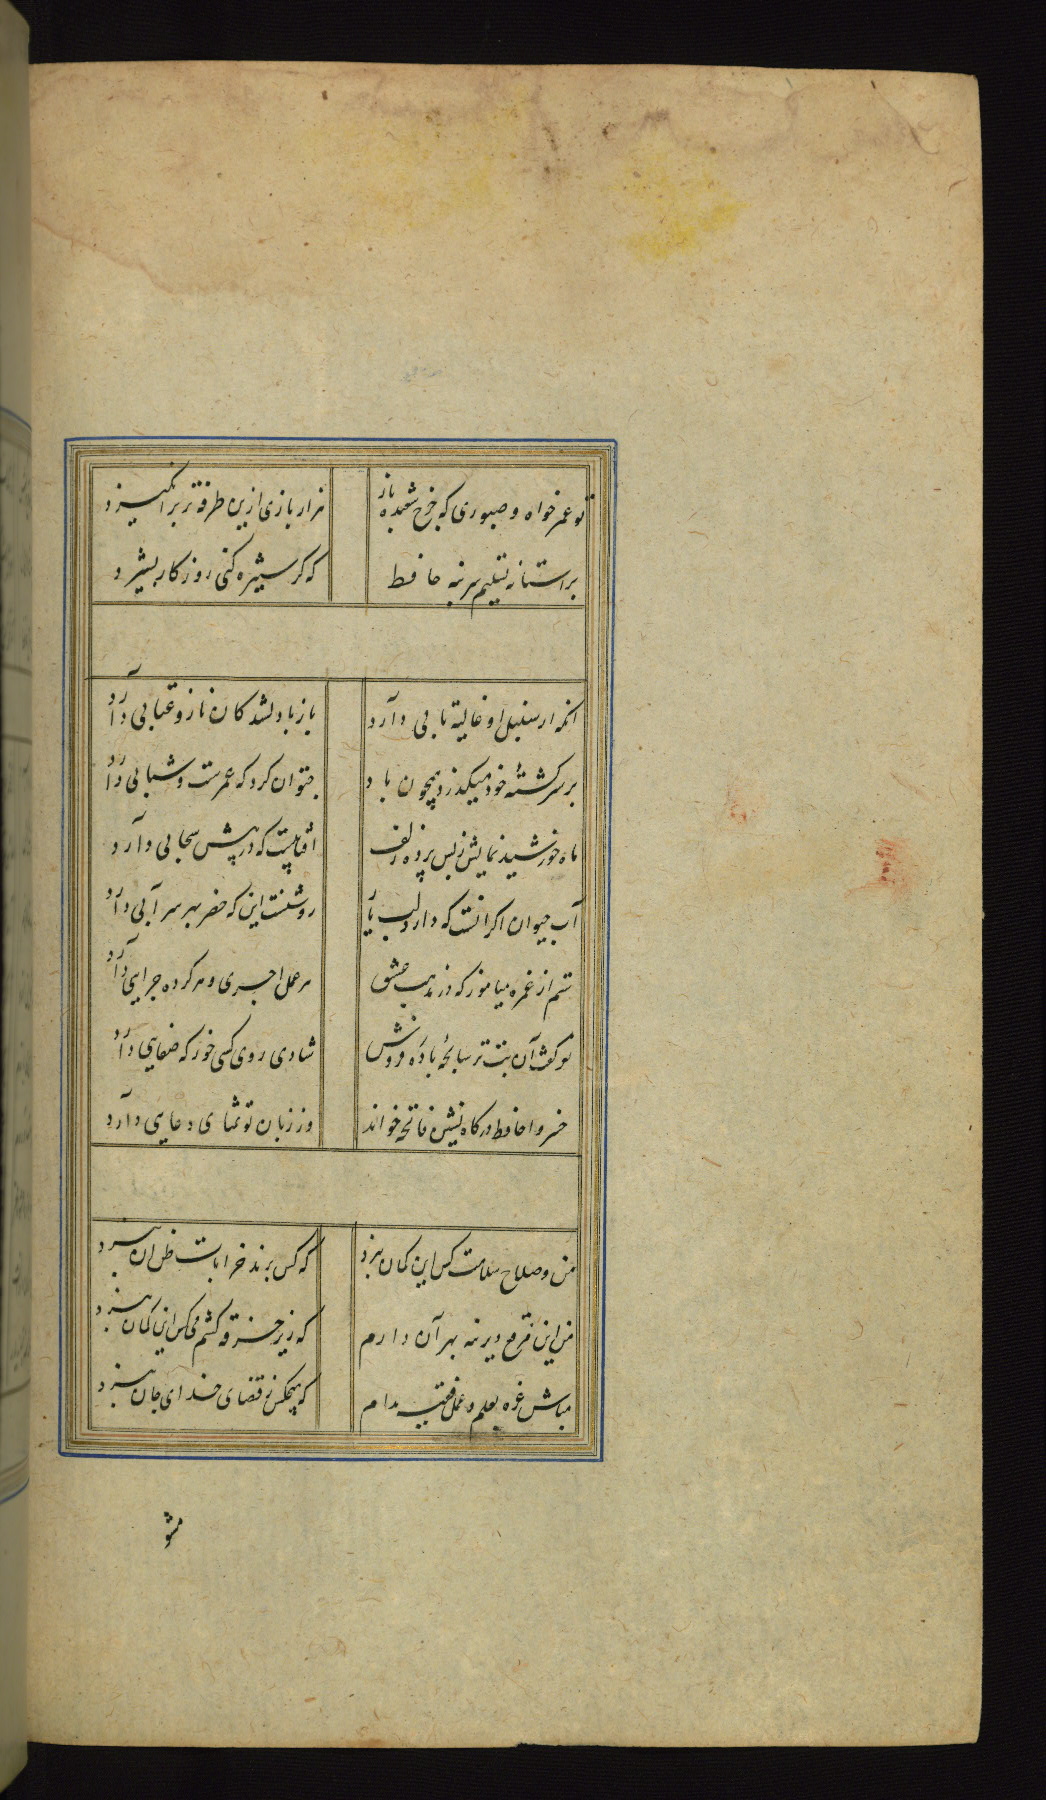 تو عمر خواه و صبوری که چرخ شعبده باز هزار بازی ازین طرفه تر برانگیزد
بر استانه تسلیم سر بنه حافظ که گر ستیزه کنی روزگار بستیزد
انکه از سنبل او غالیه تابی دارد باز با دلشدگان ناز و عتابی دارد
بر سر کشتهٔ خود میگذرد همچون باد چتوان کرد که عمرست و شتابی دارد
ماه خورشید نمایش ز پس پرده زلف افتابیست که در پیش سحابی دارد
آب حیوان اگر انست که دارد لب یار روشنست این که خضر بهر سرابی دارد
ستم از غمزه میاموز که در مذهب عشق هر عمل اجری و هر کرده جزایی دارد
نغز گفت آن بت ترسا بچهٔ باده فروش شادی روی کسی خور که صفایی دارد
خسروا حافظ درگاه نشین فاتحه خواند وز زبان تو تمنای دعایی دارد
من و صلاح و سلامت کس این گمان نبرد که کس برند خرابات ظن آن نبرد
من این مرقع دیرینه بهر آن دارم که زیر خرقه کشم می کس این گمان نبرد
مباش غره بعلم و عمل فقیه مدام که هیچکس ز قضای خدای جان نبرد
مشو